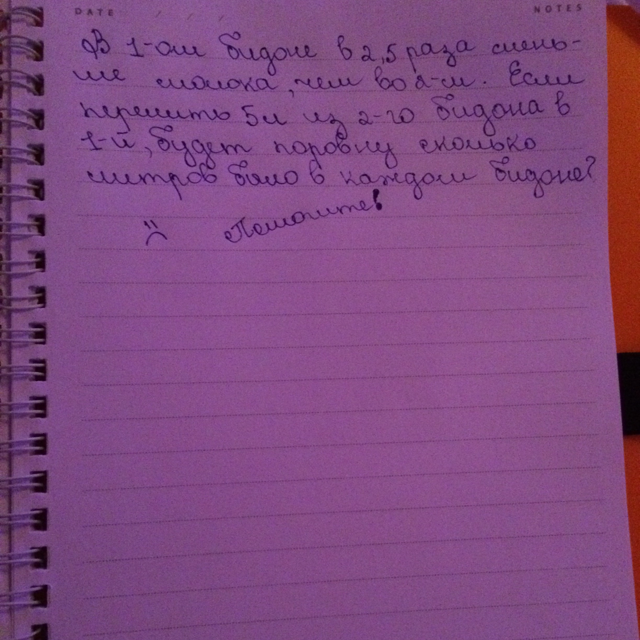 DATE / / NOTES
В 1-ом бидоне в 2,5 раза мень-
ше молока, чем во 2-м. Если
перелить 5л из 2-го бидона в
1-й, будет поровну сколько
литров было в каждом бидоне?
:( Помогите!